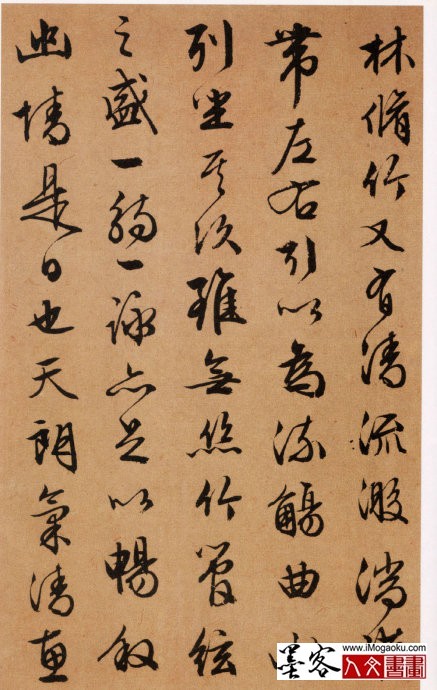 林脩竹又有清流激湍
帶左右引以為流觴曲水
列坐其次雖無絲竹管絃
之盛一觴一詠亦足以暢叙
幽情是日也天朗氣清惠
www.iMogaoku.com
墨客 人文書畫